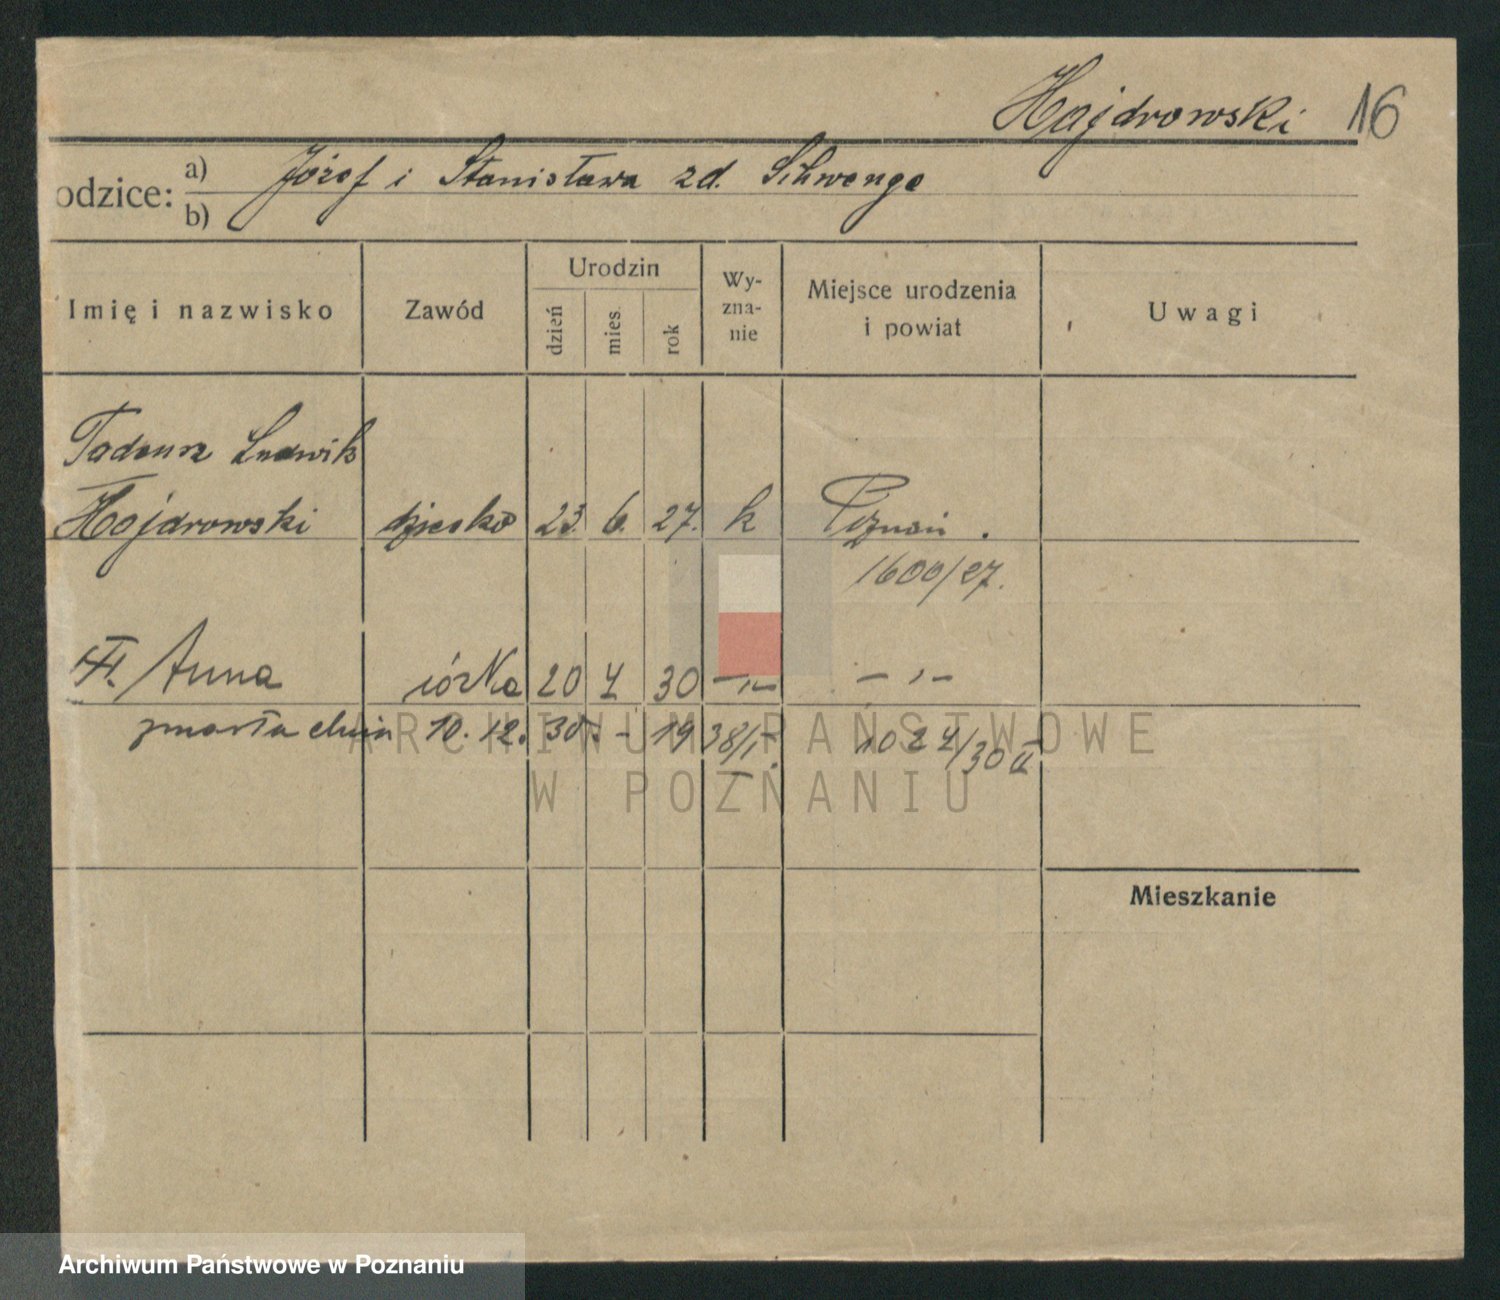 Hajdrowski 16
odzice: a) Józef i Stanisława zd. Schwenge
b)
Imię i nazwisko Zawód Urodzin dzień mies. rok Wy-zna-nie Miejsce urodzenia i powiat Uwagi
Tadeusz Ludwik
Hajdrowski dziecko 23. 6. 27. k Poznań.
1600/27.
H. Anna córka 20 7 30 -„- -„-
zmarła dnia 10. 12. 30. - 19 38/ 1027/30 II
Mieszkanie
ARCHIWUM PAŃSTWOWE
W POZNANIU
Archiwum Państwowe w Poznaniu